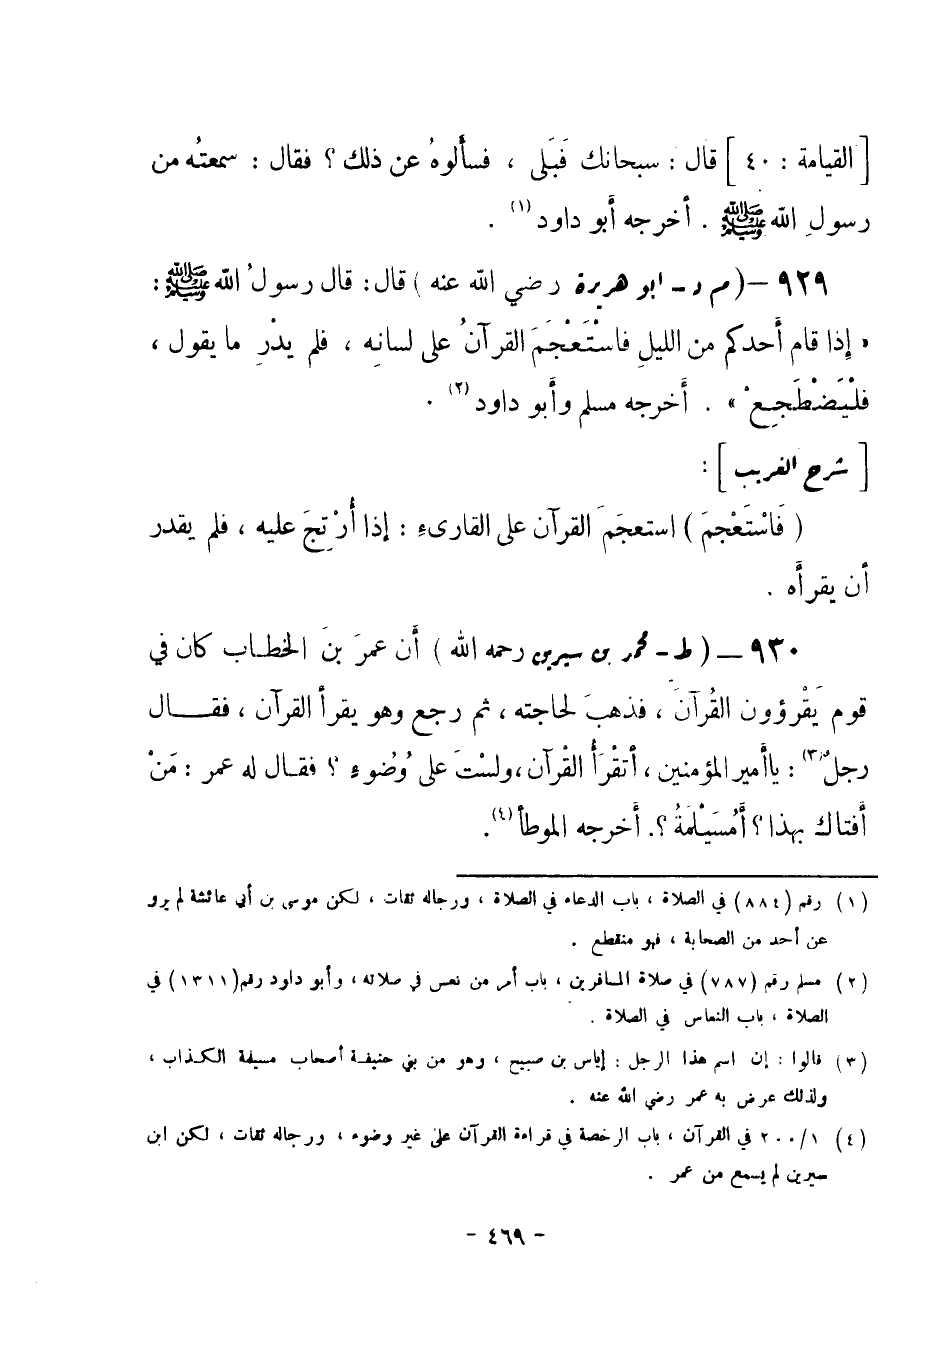 [ القيامة : ٤٠ ] قال : سبحانك فَبَلى ، فسألوهُ عن ذلك ؟ فقال : سمعتُه من
رسولِ الله ﷺ . أخرجه أبو داود (١) .
٩٢٩ – ( م د - ابو هريرة رضي الله عنه ) قال : قال رسولُ الله ﷺ :
« إذا قام أحدكم من الليلِ فاسْتَعْجَمَ القرآنُ على لسانِه ، فلم يدْرِ ما يقول ،
فلْيَضْطَجِعْ » . أخرجه مسلم وأبو داود (٢) .
[ شرح الغريب ] :
( فَاسْتَعْجَمَ ) استعجَمَ القرآن على القارىء : إذا أُرْتِجَ عليه ، فلم يقدر
أن يقرأَه .
٩٣٠ – ( ط - محمد بن سيرين رحمه الله ) أن عمرَ بنَ الخطاب كان في
قوم يَقْرؤون القُرآنَ ، فذهبَ لحاجته ، ثم رجع وهو يقرأ القرآن ، فقـــال
رجلٌ (٣) : ياأمير المؤمنين ، أتقْرَأُ القْرآن ، ولسْتَ على وُضُوءٍ ؟ فقال له عمر : مَنْ
أفتاك بهذا ؟ أَمُسَيْلَمَةُ ؟. أخرجه الموطأ (٤) .
(١) رقم (٨٨٤) في الصلاة ، باب الدعاء في الصلاة ، ورجاله ثقات ، لكن موسى بن أبي عائشة لم يرو
عن أحد من الصحابة ، فهو منقطع .
(٢) مسلم رقم (٧٨٧) في صلاة المسافرين ، باب أمر من نعس في صلاته ، وأبو داود رقم (١٣١١) في
الصلاة ، باب النعاس في الصلاة .
(٣) قالوا : إن اسم هذا الرجل : إياس بن صبيح ، وهو من بني حنيفة أصحاب مسيلمة الكذاب ،
ولذلك عرض به عمر رضي الله عنه .
(٤) ٢٠٠/١ في القرآن ، باب الرخصة في قراءة القرآن على غير وضوء ، ورجاله ثقات ، لكن ابن
سيرين لم يسمع من عمر .
- ٤٦٩ -